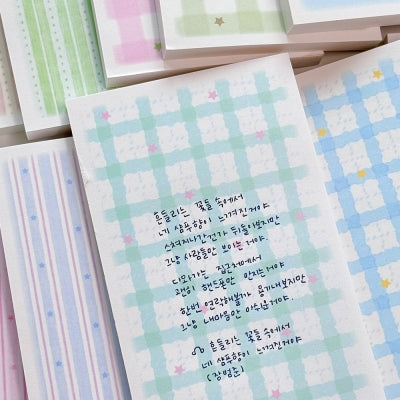 흔들리는 꽃들 속에서
네 샴푸향이 느껴진거야
스쳐지나간건가 뒤돌아보지만
그냥 사람들만 보이는거야.
다 와가는 집근처에서
괜히 핸드폰만 만지는거야
한번 연락해볼까 용기내보지만
그냥 내마음만 아쉬운거야.
흔들리는 꽃들 속에서
네 샴푸향이 느껴진거야
(장범준)